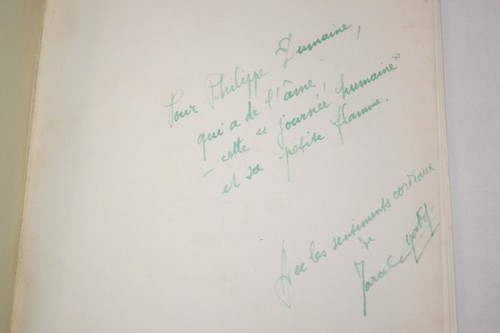 Pour Philippe Dumaine,
qui a de l'âme,
cette "journée humaine"
et sa petite flamme.
Avec les sentiments cordiaux
de